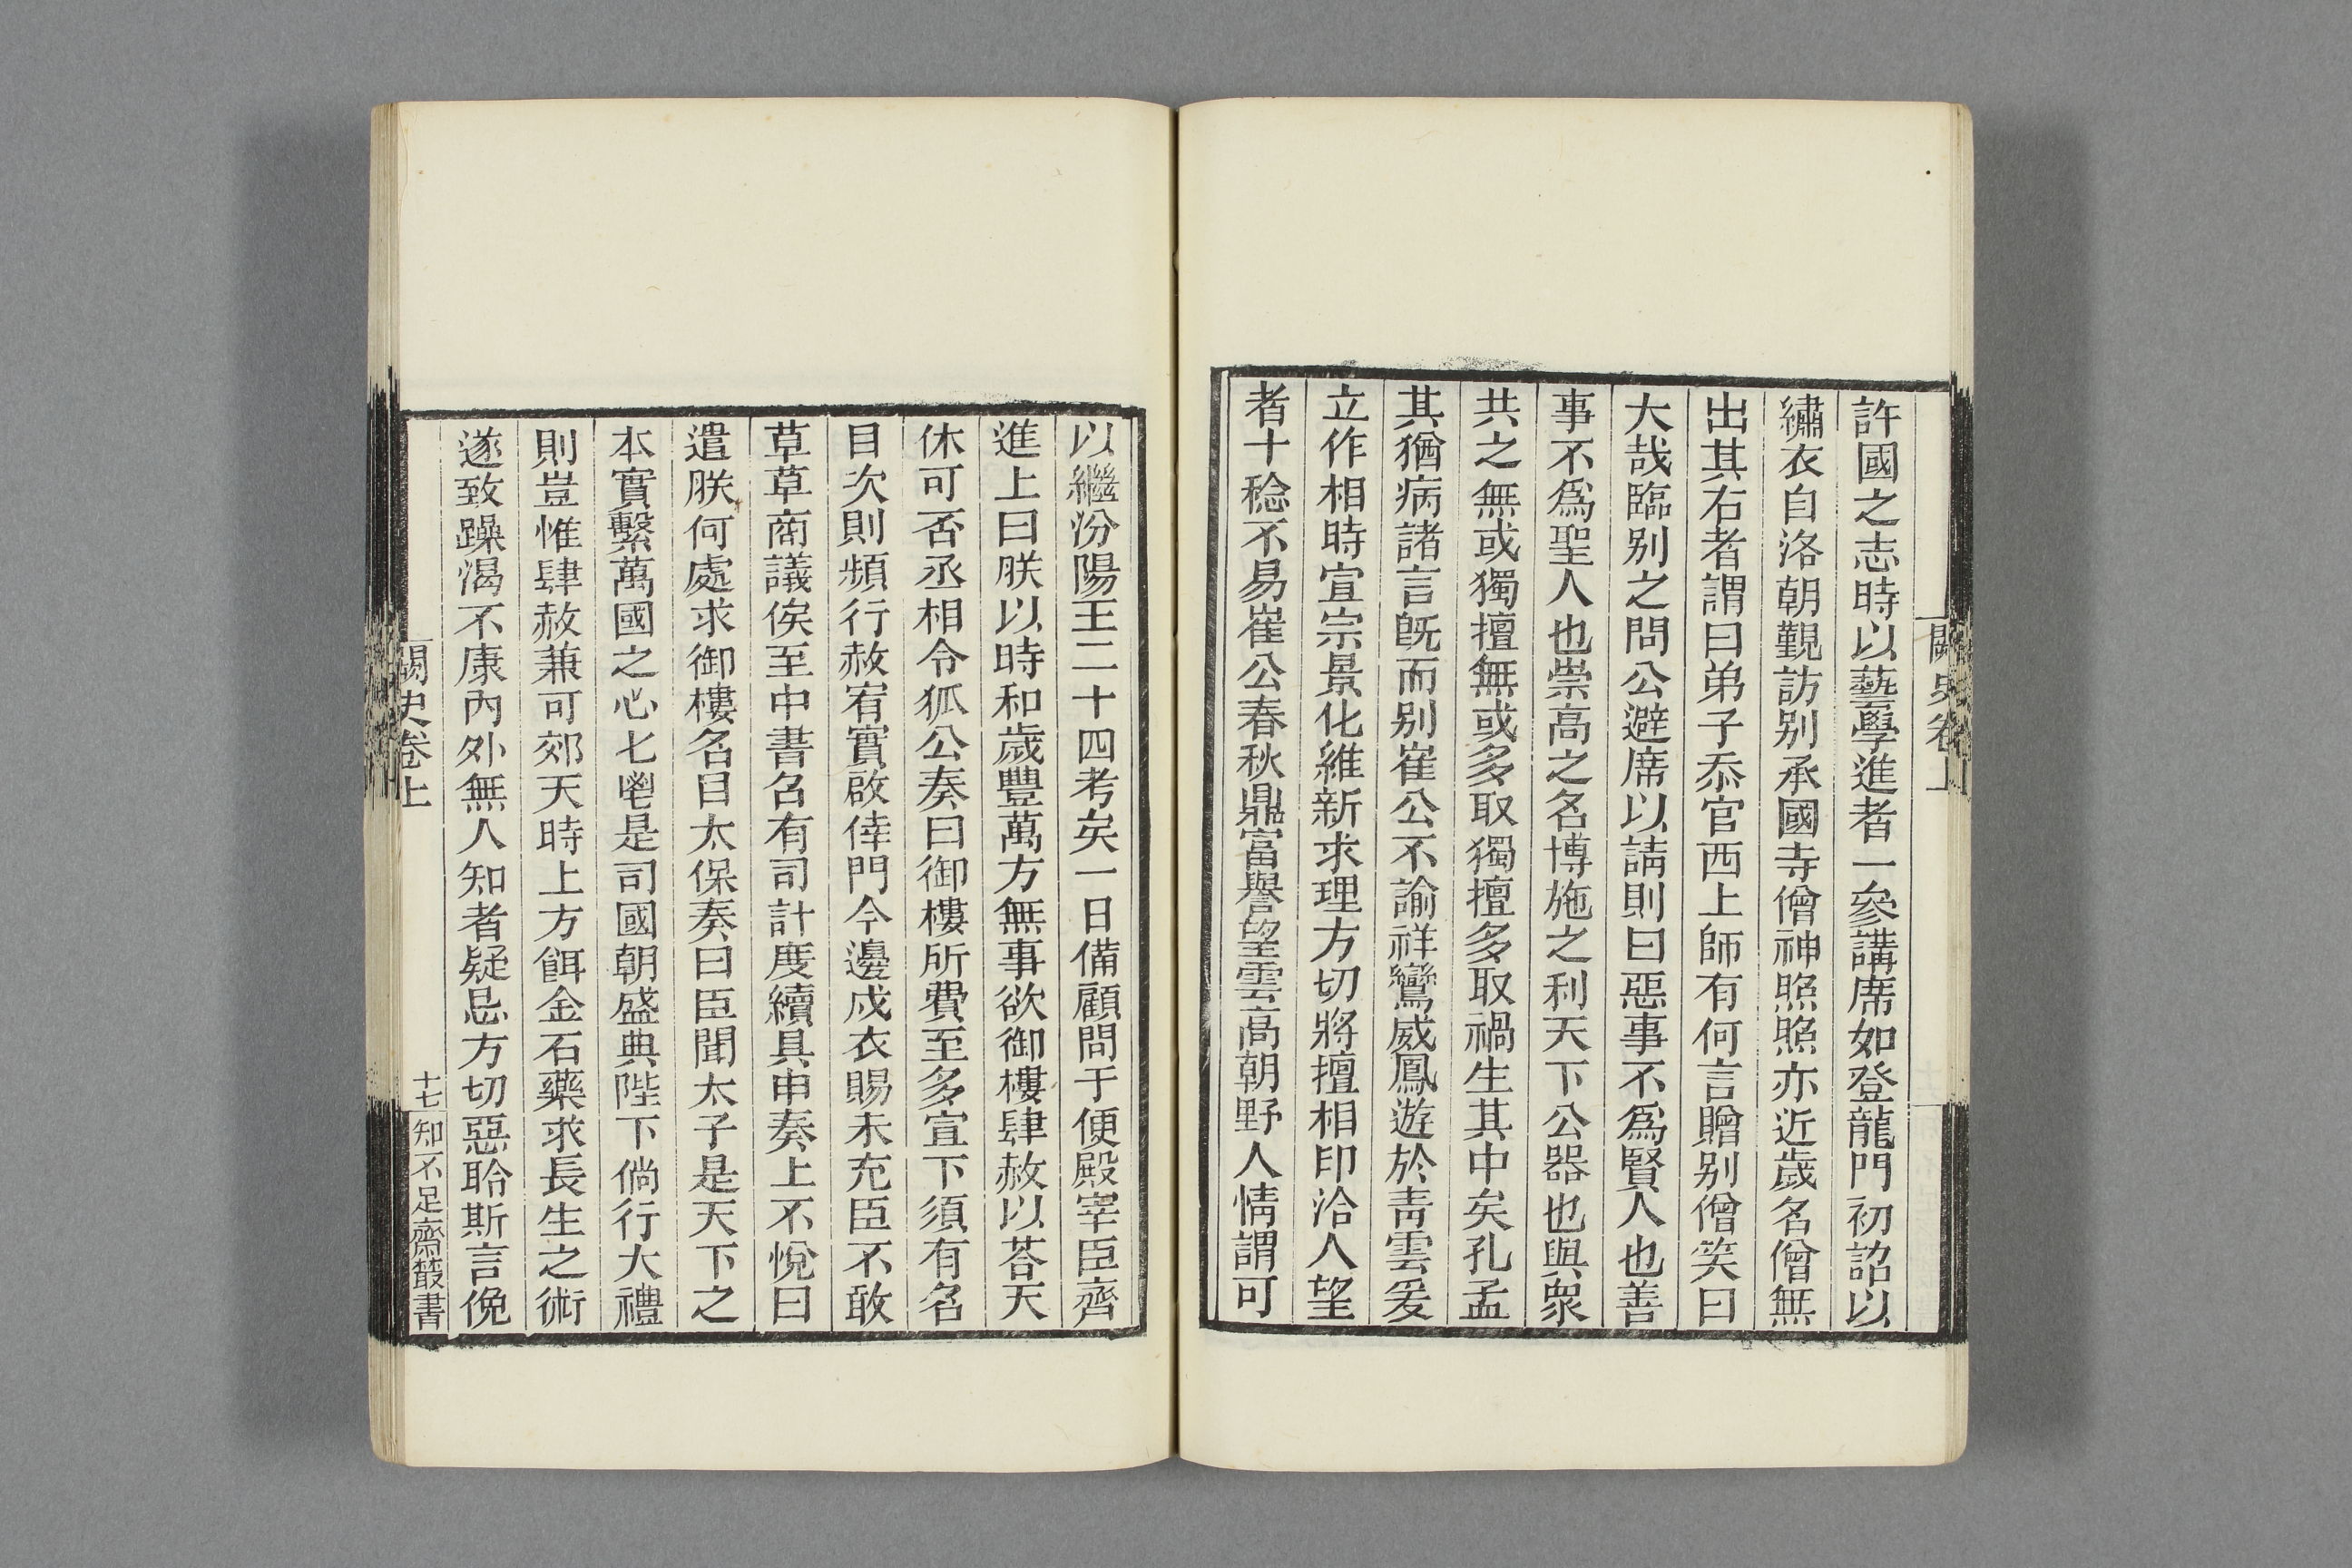 闕史卷上
許國之志時以藝學進者一叅講席如登龍門初詔以
繡衣自洛朝覲訪别承國寺僧神照照亦近歲名僧無
出其右者謂曰弟子忝官西上師有何言贈别僧笑曰
大哉臨别之問公避席以請則曰惡事不爲賢人也善
事不爲聖人也崇高之名博施之利天下公器也與衆
共之無或獨擅無或多取獨擅多取禍生其中矣孔孟
其猶病諸言旣而别崔公不諭祥鸞威鳳遊於青雲爰
立作相時宣宗景化維新求理方切將擅相印洽人望
者十稔不易崔公春秋鼎富譽望雲高朝野人情謂可
以繼汾陽王二十四考矣一日備顧問于便殿宰臣齊
進上曰朕以時和歲豐萬方無事欲御樓肆赦以荅天
休可否丞相令狐公奏曰御樓所費至多宣下須有名
目次則頻行赦宥實啟倖門今邊戍衣賜未充臣不敢
草草商議俟至中書召有司計度續具申奏上不悅曰
遣朕何處求御樓名目太保奏曰臣聞太子是天下之
本實繫萬國之心七鬯是司國朝盛典陛下倘行大禮
則豈惟肆赦兼可郊天時上方餌金石藥求長生之術
遂致躁渴不康內外無人知者疑忌方切惡聆斯言俛
闕史卷上
十七
知不足齋叢書